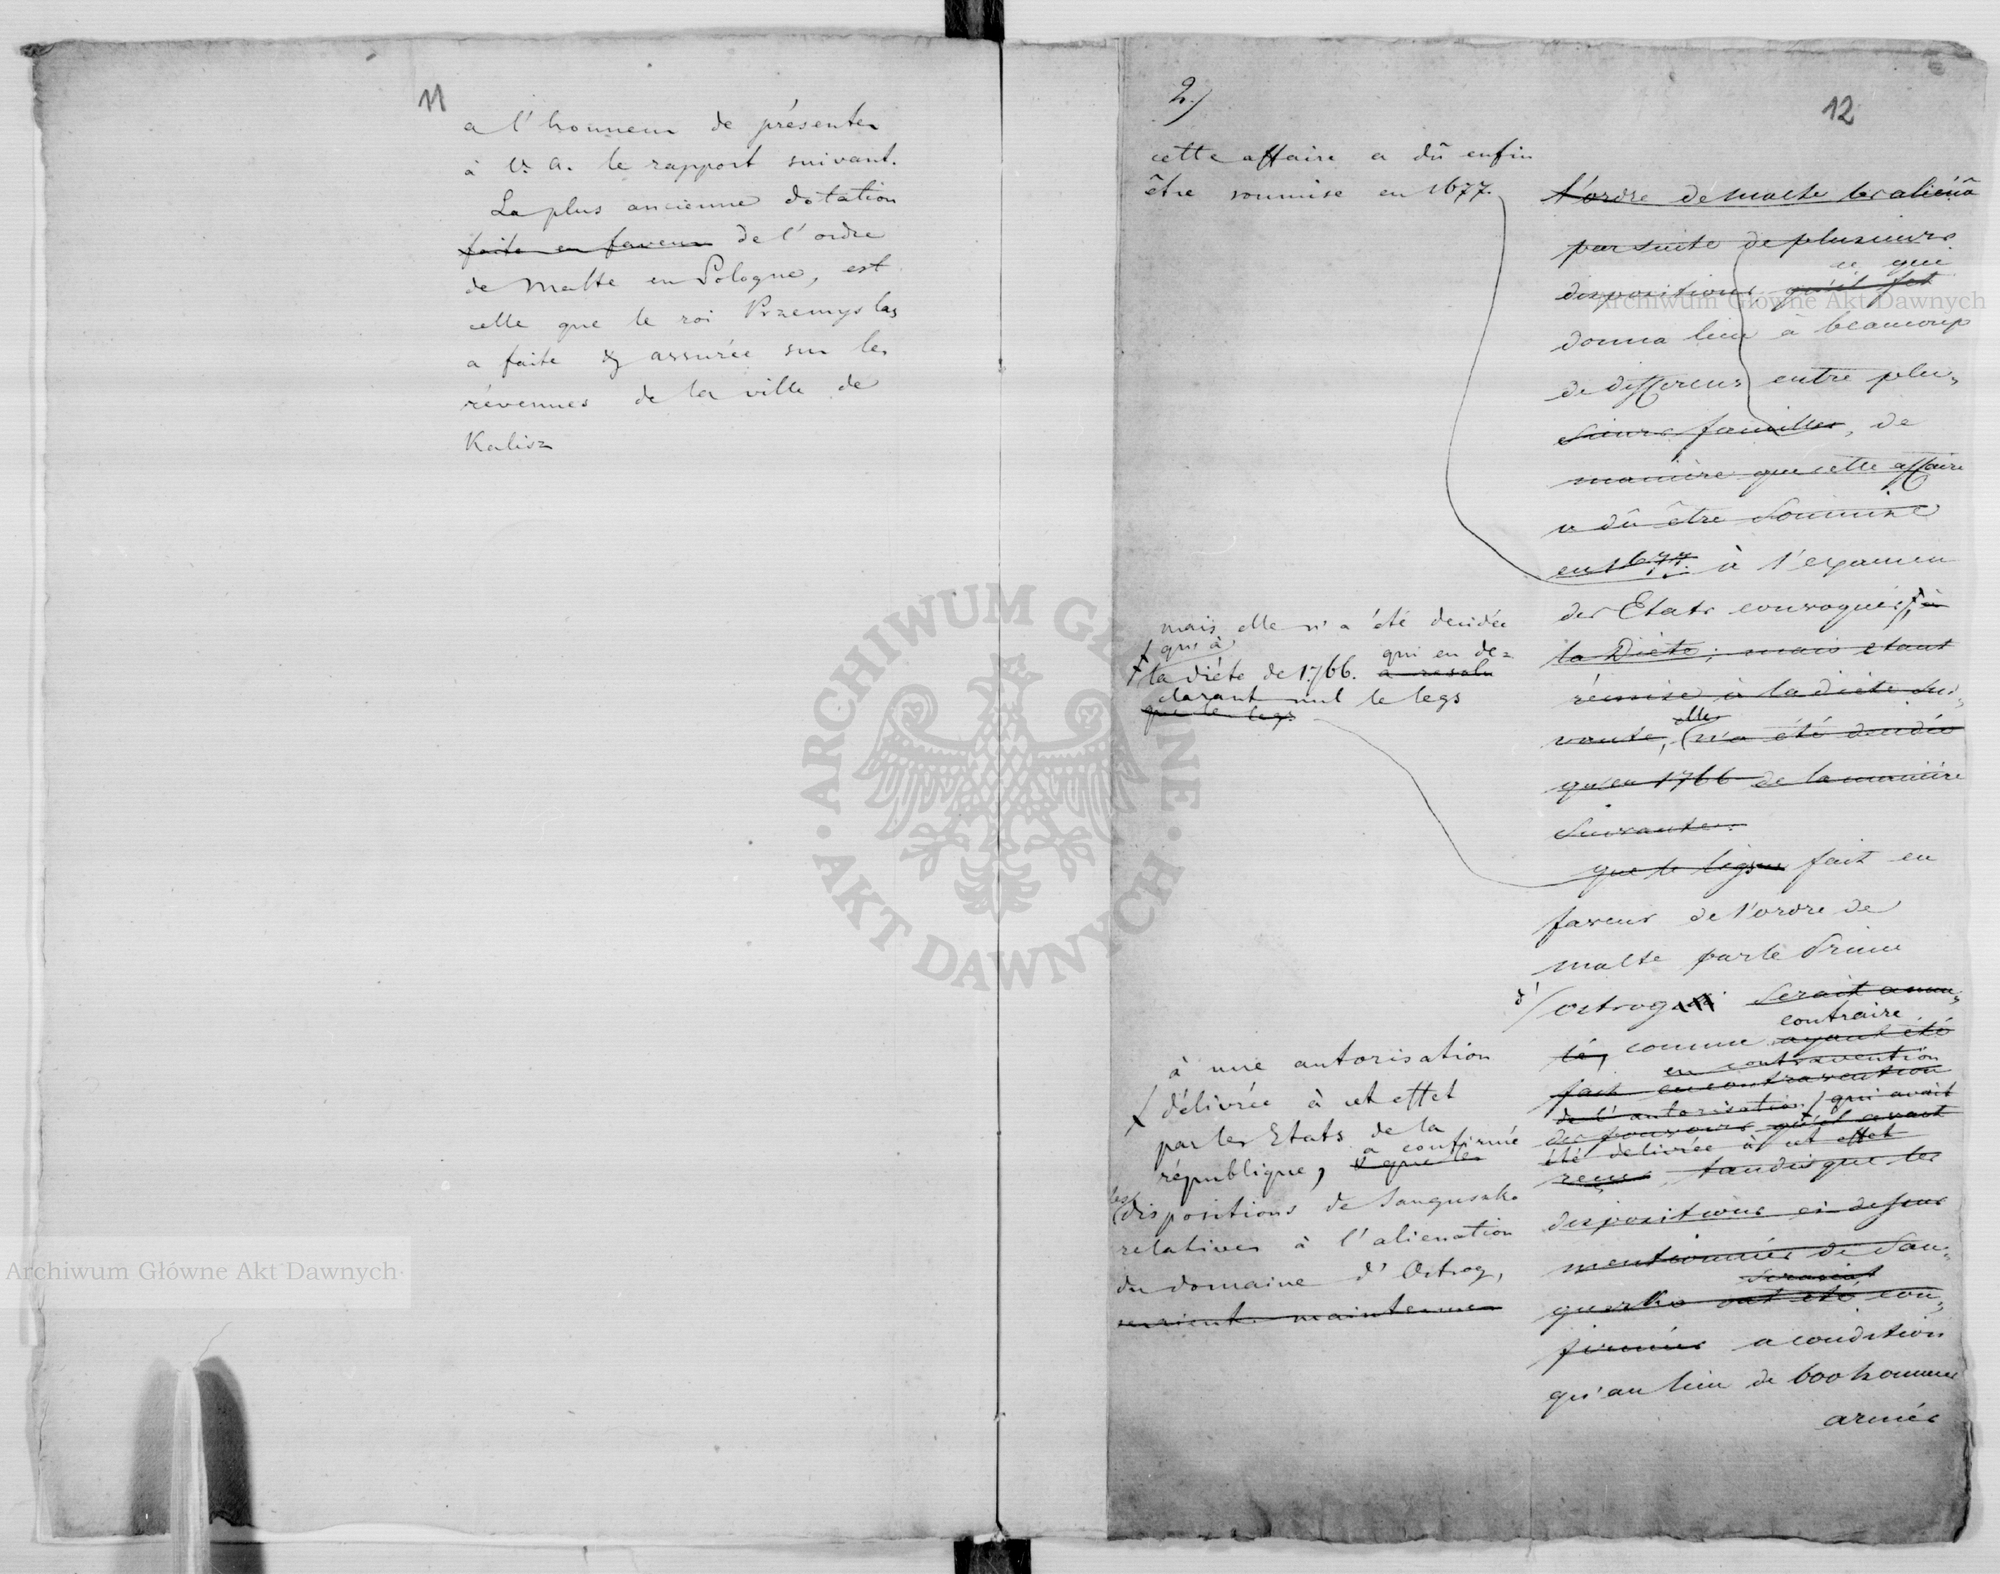 11
a l'honneur de présenter
à V. A. le rapport suivant.
La plus ancienne dotation
faite en faveur de l'ordre
de Malte en Pologne, est
celle que le roi Przemyslas
a faite & assurée sur les
révenues de la ville de
Kalisz
2.)
12
cette affaire a dû enfin
être soumise en 1677.
mais elle n'a été decidée
qu'à
la diéte de 1766. a resolu
qui en de=
clarant nul le legs
que le legs
à une autorisation
délivrée à cet effet
par les Etats de la
république, a confirmé
& que les
les dispositions de Sanguszko
relatives à l'alienation
du domaine d'Ostrog,
seraient maintenues
l'ordre de Malte les aliéna
par suite de plusieurs
ce qui
dispositions qu'il fit
donna lieu à beaucoup
de differens entre plu,,
sieurs familles, de
manière que cette affaire
a dû être soumise
en 1677. à l'examen
des Etats convoqués, à
la Diéte; mais etant
remise à la diéte sui,,
elle
vante, n'a été decidée
qu'en 1766 de la manière
suivante:
que le legs fait en
faveur de l'ordre de
malte par le Prince
d'
Ostrog serait annu,,
contraire
lé, comme ayant été
en contravention
fait en contravention
de l'autorisation, qui avait
des pouvoirs qu'il avait
été delivrée à cet effet
reçus, tandis que les
dispositions ci-dessus
mentionnées de San,,
seraient
guszko ont été con,,
firmées a condition
qu'au lieu de 600 hommes
armés
Archiwum Główne Akt Dawnych
Archiwum Główne Akt Dawnych
ARCHIWUM GŁÓWNE
AKT DAWNYCH